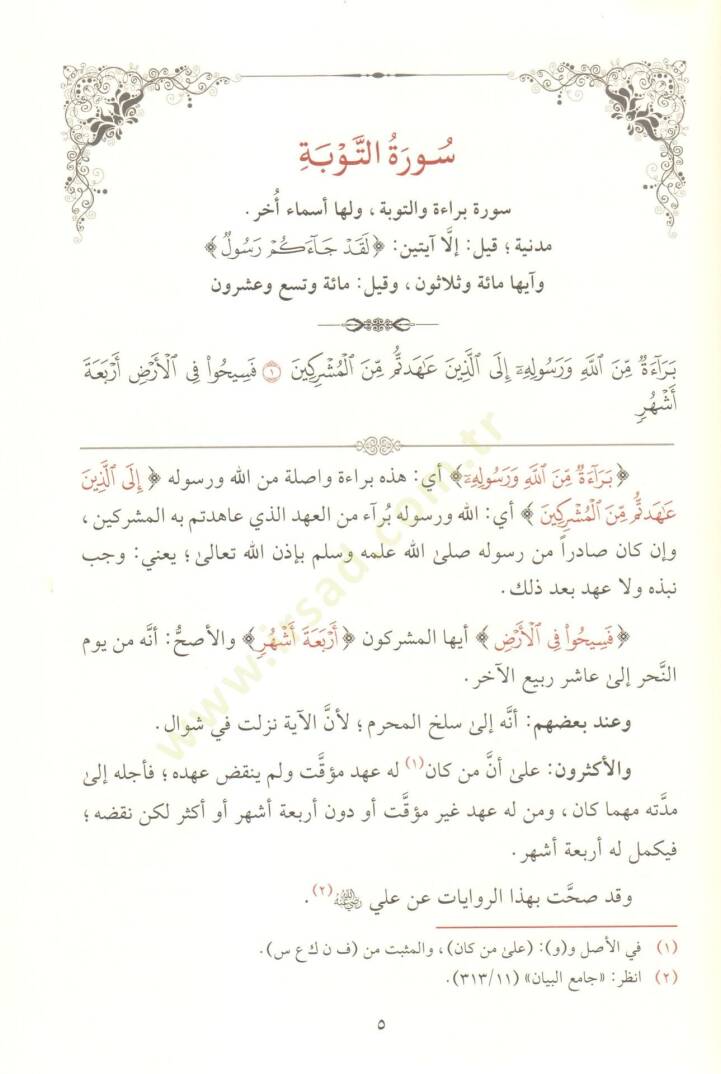 سُورَةُ التَّوْبَةِ
سورة براءة والتوبة ، ولها أسماء أُخر .
مدنية ؛ قيل: إلَّا آيتين: ﴿لَقَدْ جَآءَكُمْ رَسُولٌ﴾
وآيها مائة وثلاثون ، وقيل: مائة وتسع وعشرون
بَرَآءَةٌ مِّنَ ٱللَّهِ وَرَسُولِهِۦٓ إِلَى ٱلَّذِينَ عَٰهَدتُّم مِّنَ ٱلْمُشْرِكِينَ ١ فَسِيحُوا۟ فِى ٱلْأَرْضِ أَرْبَعَةَ
أَشْهُرٍ
﴿بَرَآءَةٌ مِّنَ ٱللَّهِ وَرَسُولِهِۦٓ﴾ أي: هذه براءة واصلة من الله ورسوله ﴿إِلَى ٱلَّذِينَ
عَٰهَدتُّم مِّنَ ٱلْمُشْرِكِينَ﴾ أي: الله ورسوله بُرآء من العهد الذي عاهدتم به المشركين ،
وإن كان صادراً من رسوله صلىٰ الله علمه وسلم بإذن الله تعالىٰ ؛ يعني: وجب
نبذه ولا عهد بعد ذلك .
﴿فَسِيحُوا۟ فِى ٱلْأَرْضِ﴾ أيها المشركون ﴿أَرْبَعَةَ أَشْهُرٍ﴾ والأصحُّ: أنَّه من يوم
النَّحر إلىٰ عاشر ربيع الآخر .
وعند بعضهم: أنَّه إلىٰ سلخ المحرم ؛ لأنَّ الآية نزلت في شوال .
والأكثرون: علىٰ أنَّ من كان(١) له عهد مؤقَّت ولم ينقض عهده ؛ فأجله إلىٰ
مدَّته مهما كان ، ومن له عهد غير مؤقَّت أو دون أربعة أشهر أو أكثر لكن نقضه ؛
فيكمل له أربعة أشهر .
وقد صحَّت بهذا الروايات عن علي رضي الله عنه(٢) .
(١) في الأصل و(و): (علىٰ من كان) ، والمثبت من (ف ن ك ع س) .
(٢) انظر: «جامع البيان» (٣١٣/١١) .
٥
www.irsad.com.tr